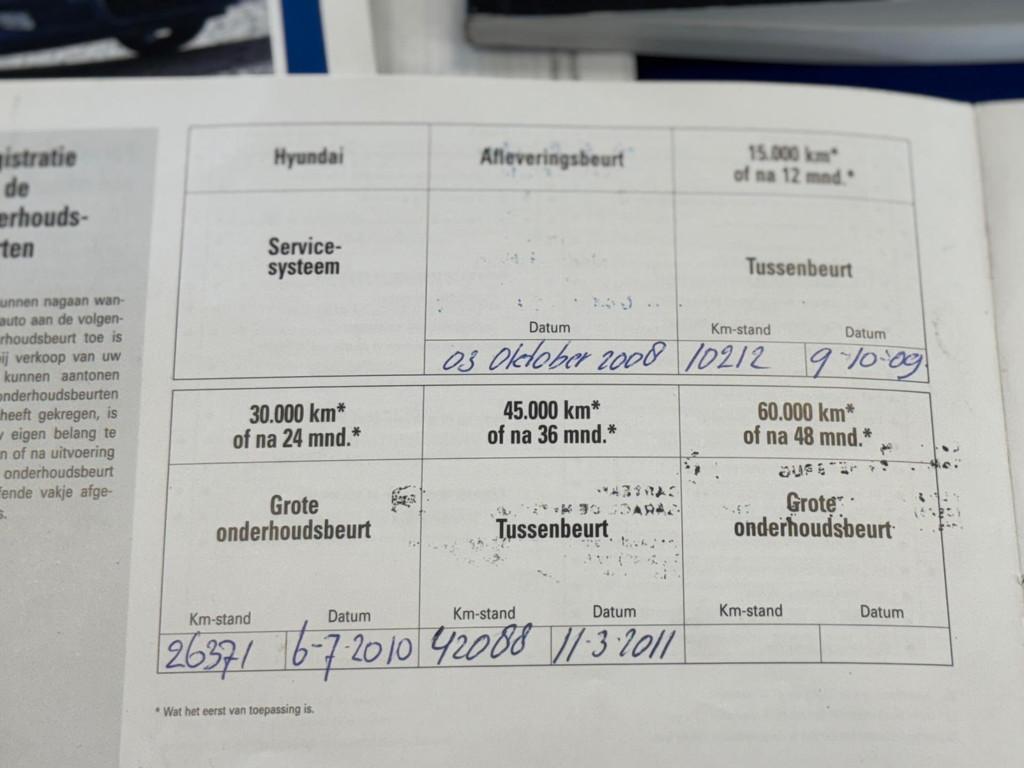 gistratie
de
erhouds-
ten
unnen nagaan wan-
auto aan de volgen-
rhoudsbeurt toe is
ij verkoop van uw
kunnen aantonen
onderhoudsbeurten
heeft gekregen, is
eigen belang te
n of na uitvoering
onderhoudsbeurt
ende vakje afge-
s.
Hyundai
Service-
systeem
Afleveringsbeurt
Datum
03 Oktober 2008
15.000 km*
of na 12 mnd.*
Tussenbeurt
Km-stand Datum
10212 9-10-09
30.000 km*
of na 24 mnd.*
Grote
onderhoudsbeurt
Km-stand Datum
26371 6-7-2010
45.000 km*
of na 36 mnd.*
Tussenbeurt
Km-stand Datum
42088 11-3-2011
60.000 km*
of na 48 mnd.*
Grote
onderhoudsbeurt
Km-stand Datum
* Wat het eerst van toepassing is.